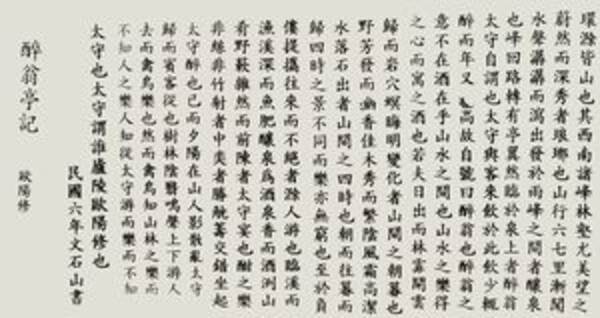 環滁皆山也其西南諸峰林壑尤美望之
蔚然而深秀者琅瑘也山行六七里漸聞
水聲潺潺而瀉出發於兩峰之間者釀泉
也峰回路轉有亭翼然臨於泉上者醉翁
太守自謂也太守與客來飲於此飲少輒
醉而年又高故自號曰醉翁也醉翁之
意不在酒在乎山水之間也山水之樂得
之心而寓之酒也若夫日出而林霏開雲
歸而岩穴暝晦明變化者山間之朝暮也
野芳發而幽香佳木秀而繁陰風霜高潔
水落石出者山間之四時也朝而往暮而
歸四時之景不同而樂亦無窮也至於負
僂提攜往來而不絕者滁人游也臨溪而
漁溪深而魚肥釀泉為酒泉香而酒洌山
肴野蔌雜然而前陳者太守宴也酣之樂
非絲非竹射者中奕者勝觥籌交錯坐起
太守醉也已而夕陽在山人影散亂太守
歸而賓客從也樹林陰翳鳴聲上下游人
去而禽鳥樂也然而禽鳥知山林之樂而
不知人之樂人知從太守游而樂而不知
太守也太守謂誰廬陵歐陽修也
民國六年文石山書
醉翁亭記
歐陽修